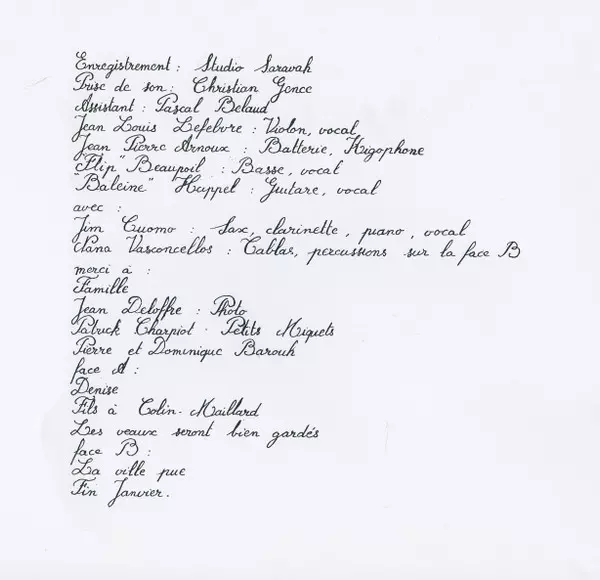 Enregistrement : Studio Saravah
Prise de son : Christian Gence
Assistant : Pascal Belaud
Jean Louis Lefebvre : Violon, vocal
Jean Pierre Arnoux : Batterie, Kigophone
"Flip" Beaupoil : Basse, vocal
"Baleine" Huppel : Guitare, vocal
avec :
Jim Cuomo : Sax, clarinette, piano, vocal
Nana Vasconcellos : Tablas, percussions sur la face B
merci à :
Famille
Jean Deloffre : Photo
Patrick Charpiot . Petits Miquets
Pierre et Dominique Barouh
face A :
Denise
Fils à Colin-Maillard
Les veaux seront bien gardés
face B :
La ville pue
Fin Janvier.